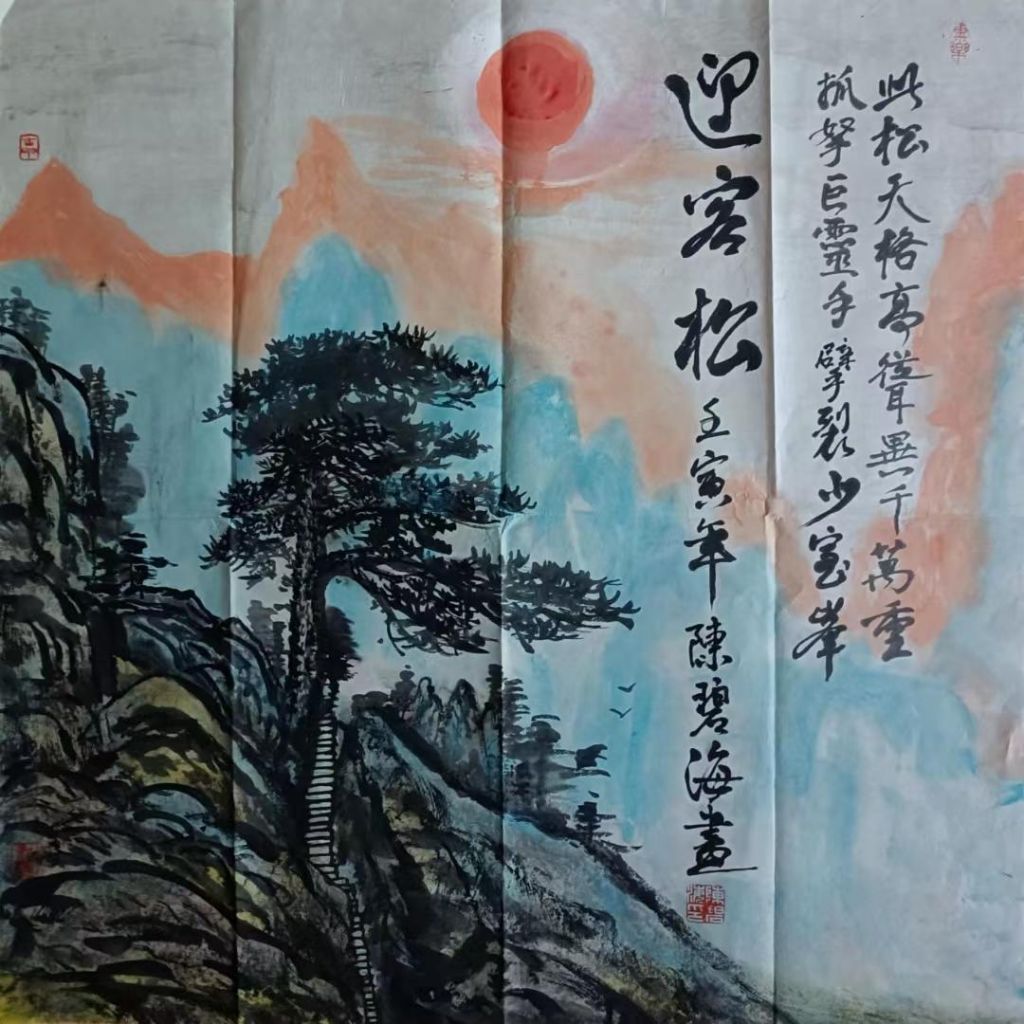 此松天格高聳異千萬重
抓拏巨靈手擘裂少室峯
迎客松
壬寅年陳碧海畫